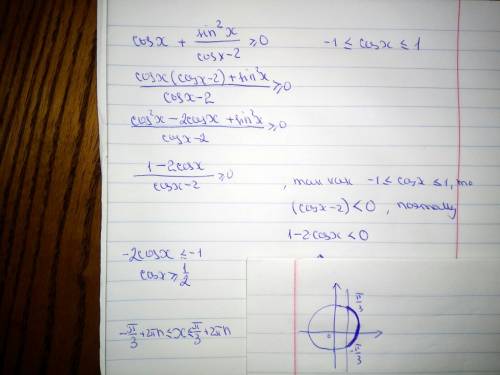 cosx + sin²x/(cosx-2) ≥0    -1 ≤ cosx ≤ 1
(cosx(cosx-2)+sin²x)/(cosx-2) ≥0
(cos²x-2cosx+sin²x)/(cosx-2) ≥0
(1-2cosx)/(cosx-2) ≥0 , так как -1 ≤ cosx ≤ 1, то
(cosx-2) < 0 , поэтому
1-2cosx ≤ 0
-2cosx ≤ -1
cosx ≥ 1/2
-π/3+2πn ≤ x ≤ π/3+2πn
π/3
0
-π/3